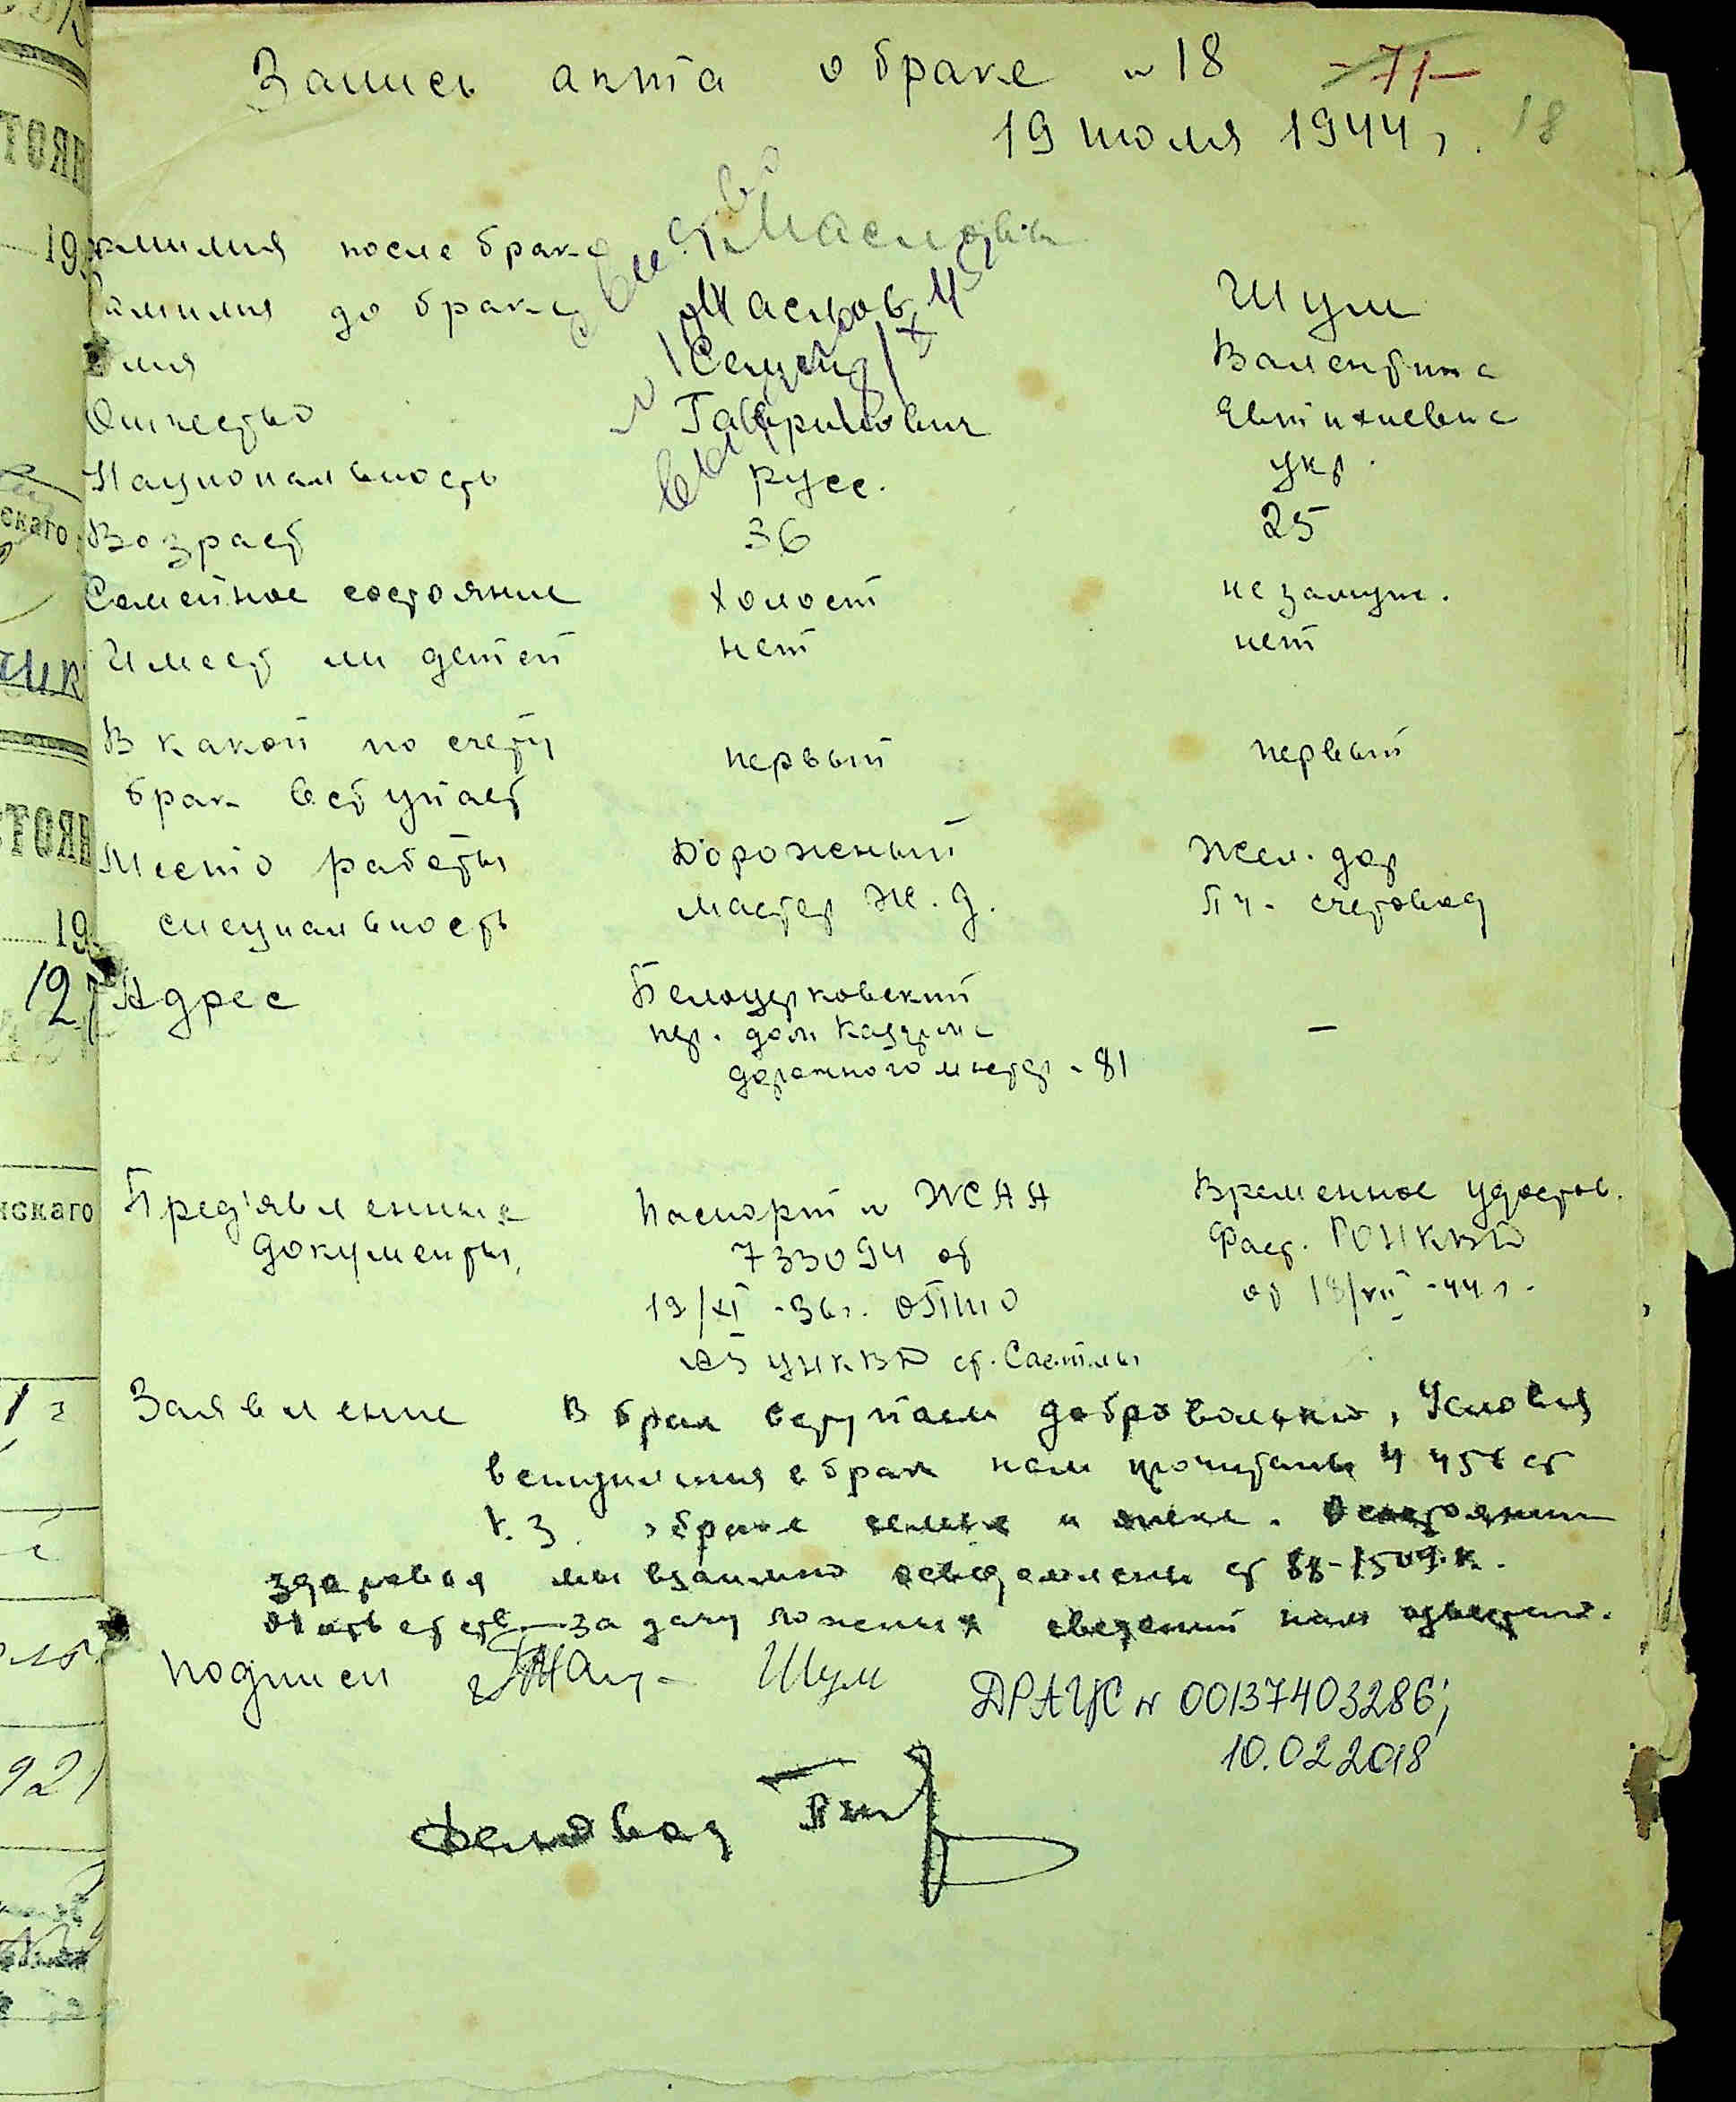 Запись акта о браке № 18 -71-
19 июля 1944 г. 18
амилия после брака Масловы
Фамилия до брака Маслов Шум
Имя Валентина
Отчество Гаврилович Евтихиевна
Национальность русс. укр.
Возраст 36 25
Семейное состояние холост не замуж.
Имеет ли детей нет нет
В какой по счету первый первый
брак вступает
Место работы Дорожный Жел. дор
специальность мастер Ж. д. ПЧ - счетовод
Адрес Белоцерковский
пер. дом
дорожного мастер - 81 —
Пред'явленные Паспорт № Временное удостов.
документы, 733094 от Фаст. РОНКВД
13/XI - 36 г. от 18/VII - 44 г.
УНКВД ст.
Заявление В брак вступаем добровольно, Условия
вступления в брак нам прочитаны
К. З. о браке семье и опеке. О состоянии
здоровья мы взаимно осведомлены ст
за дачу ложных сведений нам
Подписи Шум ДРАЦС № 00137403286;
10.02 2018
Деловод